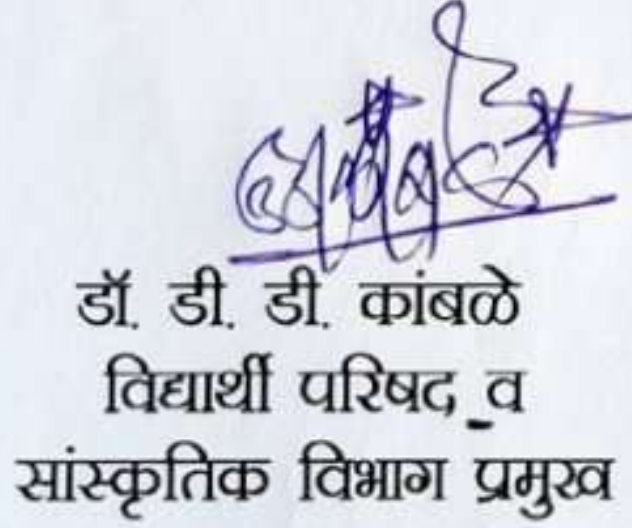 डॉ. डी. डी. कांबळे
विद्यार्थी परिषद व
सांस्कृतिक विभाग प्रमुख